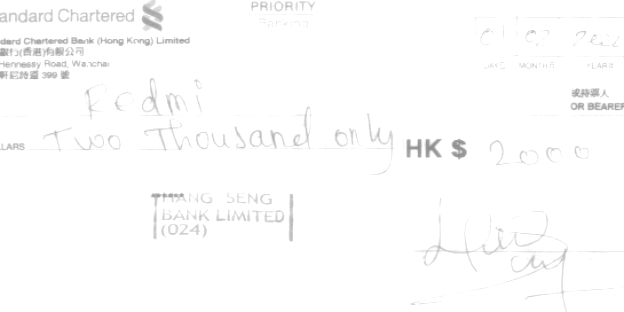 andard Chartered
PRIORITY
Banking
dard Chartered Bank (Hong Kong) Limited
銀行(香港)有限公司
Hennessy Road, Wanchai
軒尼詩道 399 號
01 07 2022
DATE MONTH月 YEAR年
Redmi
或持票人
OR BEARER
LARS Two Thousand only HK $ 2000
HANG SENG
BANK LIMITED
(024)